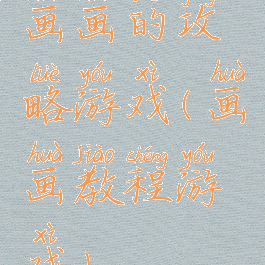 画画的攻
lüè yóu xì huà
略游戏(画
huà jiào chéng yóu
画教程游
xì
戏)